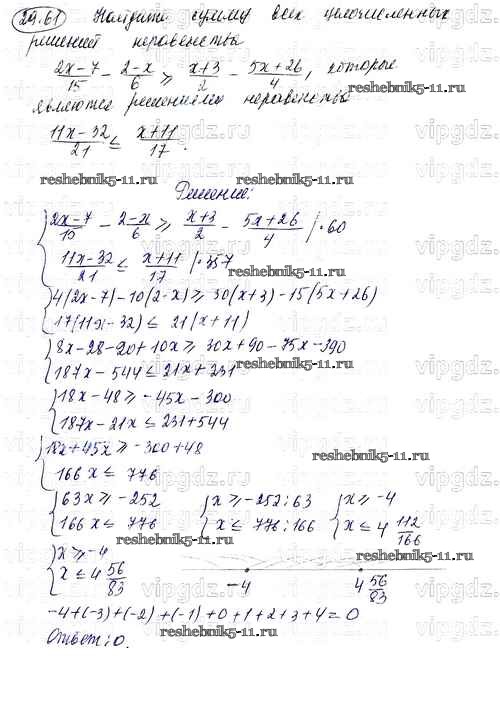 24.61 Найдите сумму всех целочисленных
решений неравенства
2x-7/15 - 2-x/6 ≥ x+3/2 - 5x+26/4, которые
являются решениями неравенства
11x-32/21 ≤ x+11/17.
reshebnik5-11.ru
reshebnik5-11.ru
Решение:
2x-7/15 - 2-x/6 ≥ x+3/2 - 5x+26/4 /·60
11x-32/21 ≤ x+11/17 /·357
reshebnik5-11.ru
4(2x-7)-10(2-x) ≥ 30(x+3)-15(5x+26)
17(11x-32) ≤ 21(x+11)
8x-28-20+10x ≥ 30x+90-75x-390
187x-544 ≤ 21x+231
18x-48 ≥ -45x-300
187x-21x ≤ 231+544
18x+45x ≥ -300+48
166x ≤ 776
reshebnik5-11.ru
63x ≥ -252 x ≥ -252:63 x ≥ -4
166x ≤ 776 x ≤ 776:166 x ≤ 4 112/166
reshebnik5-11.ru
x ≥ -4
x ≤ 4 56/83
-4 4 56/83
reshebnik5-11.ru
-4+(-3)+(-2)+(-1)+0+1+2+3+4=0
Ответ: 0.
reshebnik5-11.ru
vipgdz.ru